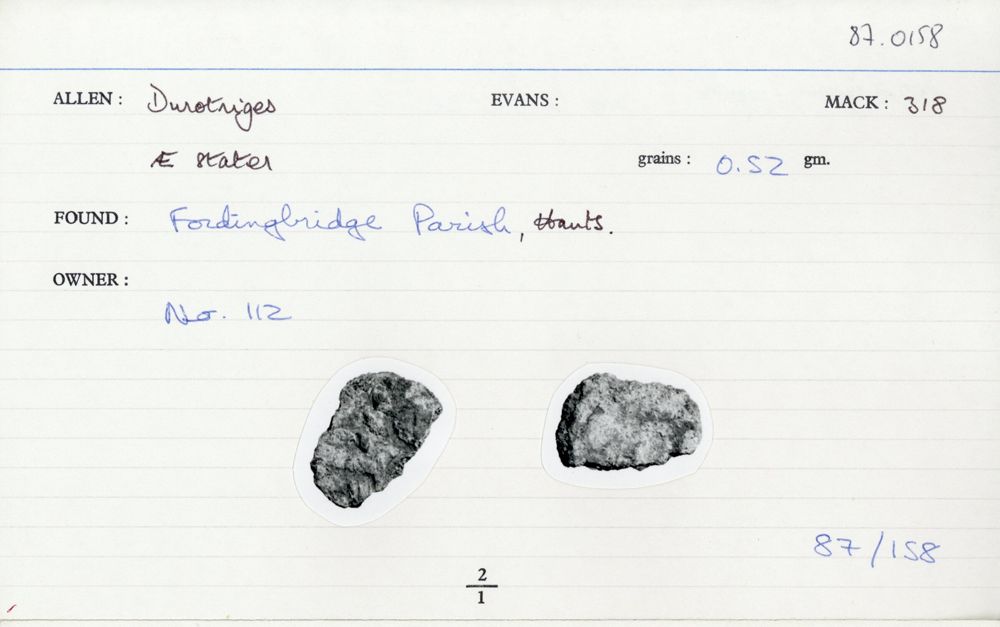 87.0158
ALLEN : Durotriges EVANS : MACK : 318
Æ stater grains : 0.52 gm.
FOUND : Fordingbridge Parish, Hants.
OWNER :
No. 112
87/158
2
1